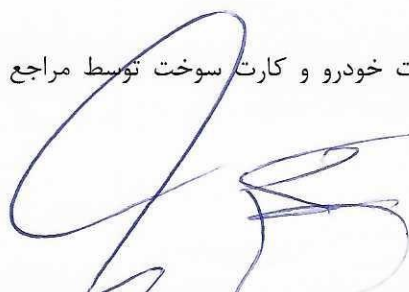 ت خودرو و کارت سوخت توسط مراجع